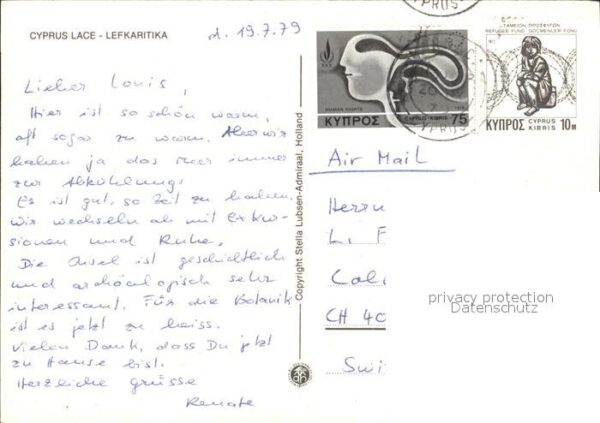 CYPRUS LACE - LEFKARITIKA
d. 19.7.79
Lieber Louis,
Hier ist so schön warm,
oft sogar zu warm. Aber wir
haben ja das Meer immer
zur Abkühlung.
Es ist gut, so Zeit zu haben.
Wir wechseln ab mit Exkur-
sionen und Ruhe.
Die Insel ist geschichtlich
und archäologisch sehr
interessant. Für die Botanik
ist es jetzt zu heiss.
Vielen Dank, dass Du jetzt
zu Hause bist.
Herzliche Grüsse
Renate
Copyright Stella Lubsen-Admiraal, Holland
HUMAN RIGHTS
1978
ΚΥΠΡΟΣ CYPRUS·KIBRIS 75
ΤΑΜΕΙΟΝ ΠΡΟΣΦΥΓΩΝ
REFUGEE FUND GÖÇMENLER FONU
1977
ΚΥΠΡΟΣ CYPRUS KIBRIS 10M
Air Mail
Herrn
L. F
CH 40
Swi
privacy protection
Datenschutz